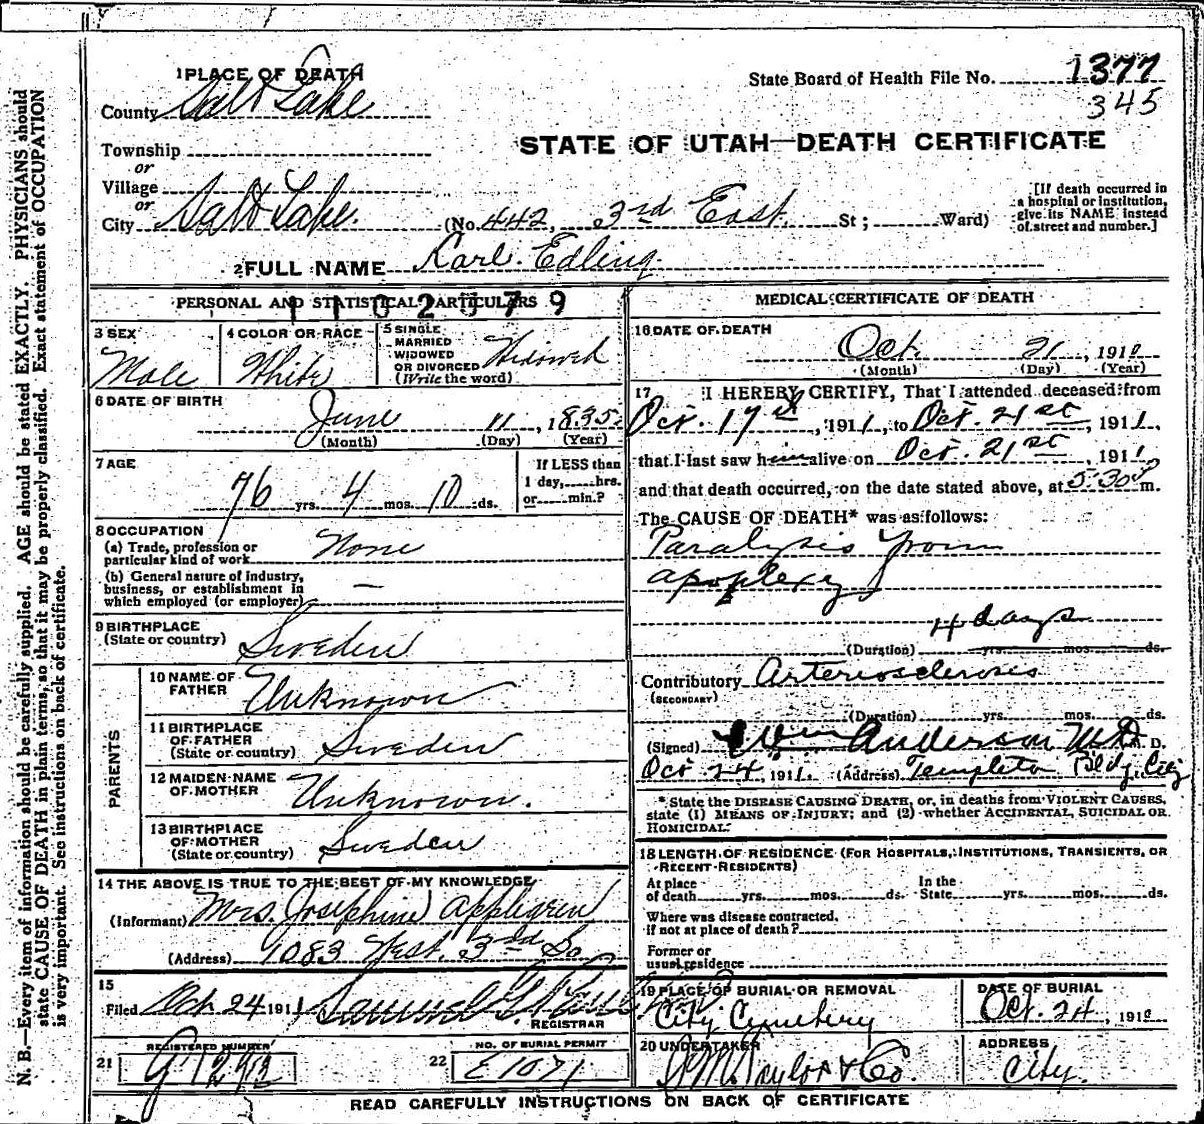 1 PLACE OF DEATH
State Board of Health File No. 1377
345
County Salt Lake
STATE OF UTAH—DEATH CERTIFICATE
Township
or
Village
or
City Salt Lake. (No. 442, 3rd East St; Ward)
[If death occurred in a hospital or institution, give its NAME instead of street and number.]
2 FULL NAME Karl Edling
PERSONAL AND STATISTICAL PARTICULARS
1102579
3 SEX Male
4 COLOR OR RACE White
5 SINGLE MARRIED WIDOWED OR DIVORCED (Write the word) Widowed
6 DATE OF BIRTH
June 11, 1835
(Month) (Day) (Year)
7 AGE
76 yrs. 4 mos. 10 ds.
If LESS than 1 day, hrs. or min.?
8 OCCUPATION
(a) Trade, profession or particular kind of work None
(b) General nature of industry, business, or establishment in which employed (or employer) —
9 BIRTHPLACE
(State or country) Sweden
PARENTS
10 NAME OF FATHER Unknown
11 BIRTHPLACE OF FATHER (State or country) Sweden
12 MAIDEN NAME OF MOTHER Unknown.
13 BIRTHPLACE OF MOTHER (State or country) Sweden
14 THE ABOVE IS TRUE TO THE BEST OF MY KNOWLEDGE
(Informant) Mrs. Josephine Applegren
(Address) 1083 West. 3rd So
15
Filed Oct 24 1911 Samuel G.
REGISTRAR
21 REGISTERED NUMBER
22 NO. OF BURIAL PERMIT
E 1071
MEDICAL CERTIFICATE OF DEATH
16 DATE OF DEATH
Oct. 21, 191
(Month) (Day) (Year)
17 I HEREBY CERTIFY, That I attended deceased from
Oct. 17th, 1911, to Oct. 21st, 1911,
that I last saw him alive on Oct. 21st, 1911,
and that death occurred, on the date stated above, at 5:30 P m.
The CAUSE OF DEATH* was as follows:
Paralysis from
apoplexy
4 days
(Duration) yrs. mos. ds.
Contributory Arteriosclerosis
(SECONDARY)
(Duration) yrs. mos. ds.
(Signed) Anderson M.D. M. D.
Oct 24, 1911. (Address) Templeton Bldg. City
* State the DISEASE CAUSING DEATH, or, in deaths from VIOLENT CAUSES,
state (1) MEANS OF INJURY; and (2) whether ACCIDENTAL, SUICIDAL OR
HOMICIDAL.
18 LENGTH OF RESIDENCE (FOR HOSPITALS, INSTITUTIONS, TRANSIENTS, OR
RECENT RESIDENTS)
At place of death yrs. mos. ds. In the State yrs. mos. ds.
Where was disease contracted,
if not at place of death?
Former or
usual residence
19 PLACE OF BURIAL OR REMOVAL
City Cemetery
DATE OF BURIAL
Oct. 24, 191
20 UNDERTAKER
Taylor & Co.
ADDRESS
City.
READ CAREFULLY INSTRUCTIONS ON BACK OF CERTIFICATE
N. B.—Every item of information should be carefully supplied. AGE should be stated EXACTLY. PHYSICIANS should
state CAUSE OF DEATH in plain terms, so that it may be properly classified. Exact statement of OCCUPATION
is very important. See instructions on back of certificate.